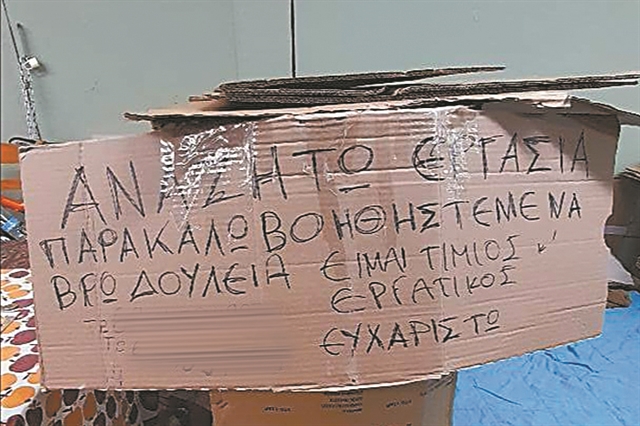 ΑΝΑΖΗΤΩ ΕΡΓΑΣΙΑ
ΠΑΡΑΚΑΛΩ ΒΟΗΘΗΣΤΕ ΜΕ ΝΑ
ΒΡΩ ΔΟΥΛΕΙΑ ΕΙΜΑΙ ΤΙΜΙΟΣ κ'
ΕΡΓΑΤΙΚΟΣ
ΕΥΧΑΡΙΣΤΩ